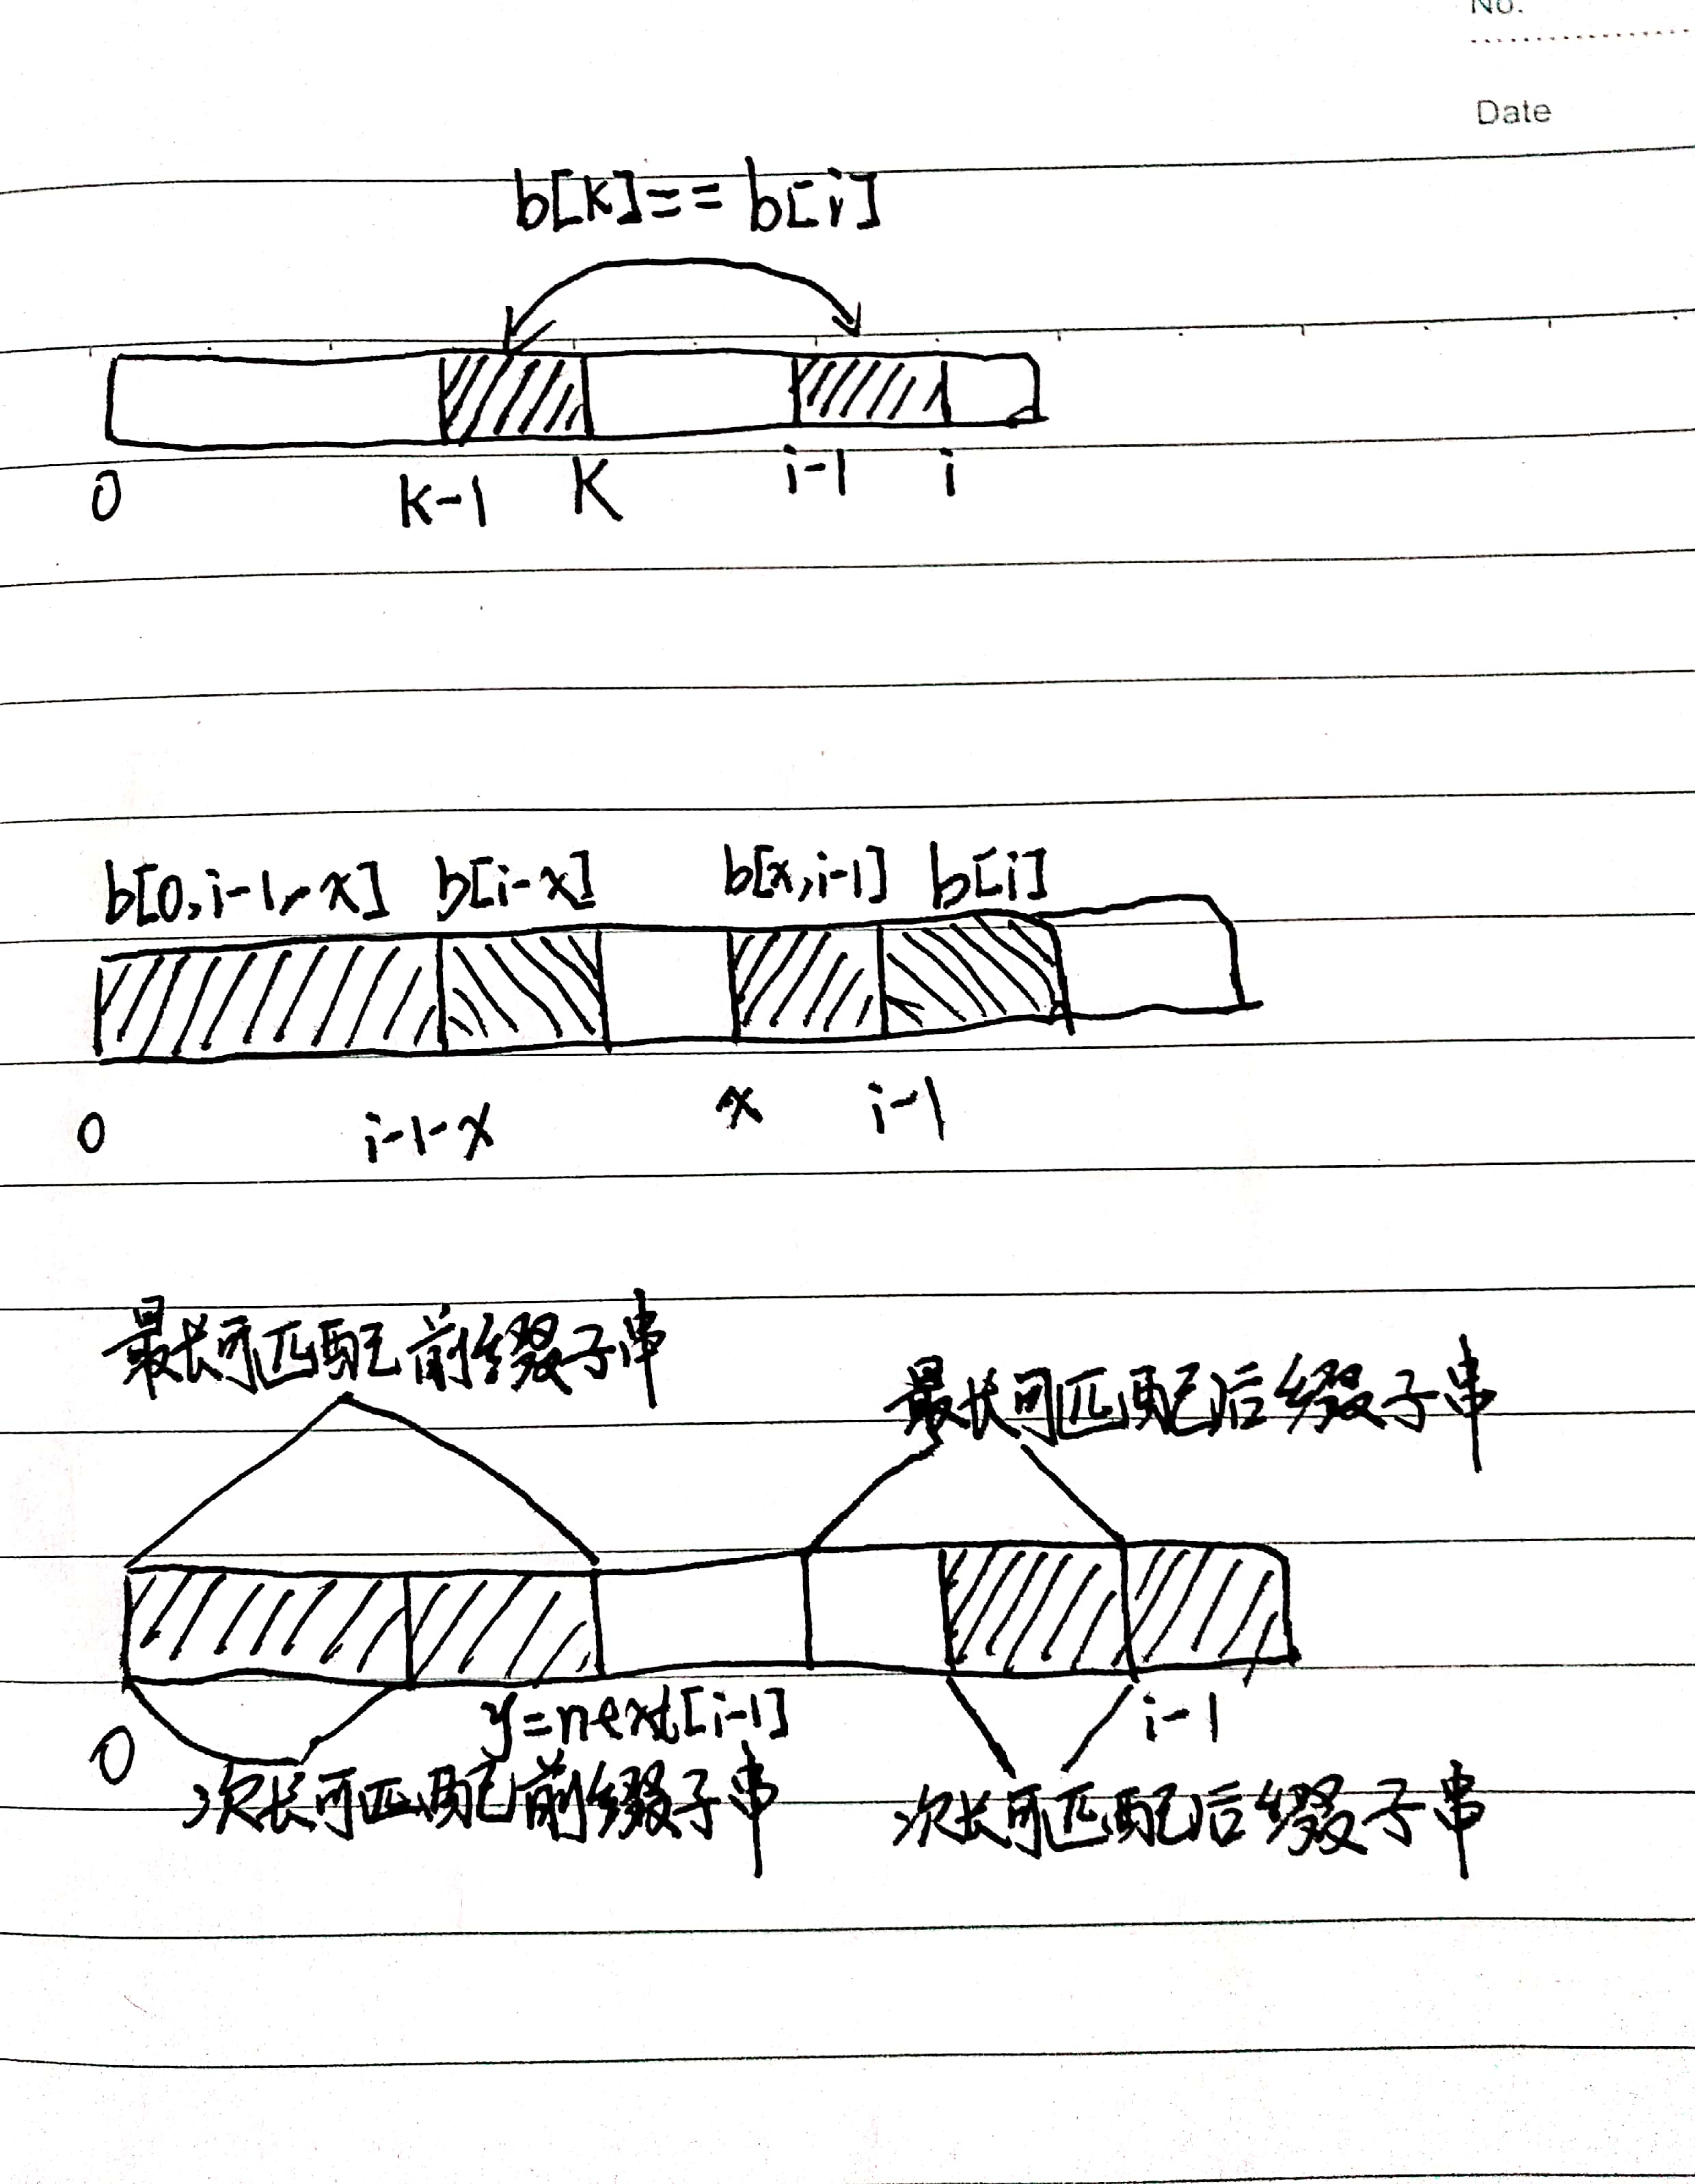 No.
Date
b[k]==b[i]
0 k-1 K i-1 i
b[0,i-1-x] b[i-x] b[x,i-1] b[i]
0 i-1-x x i-1
最长可匹配前缀子串
最长可匹配后缀子串
0 y=next[i-1] i-1
次长可匹配前缀子串 次长可匹配后缀子串